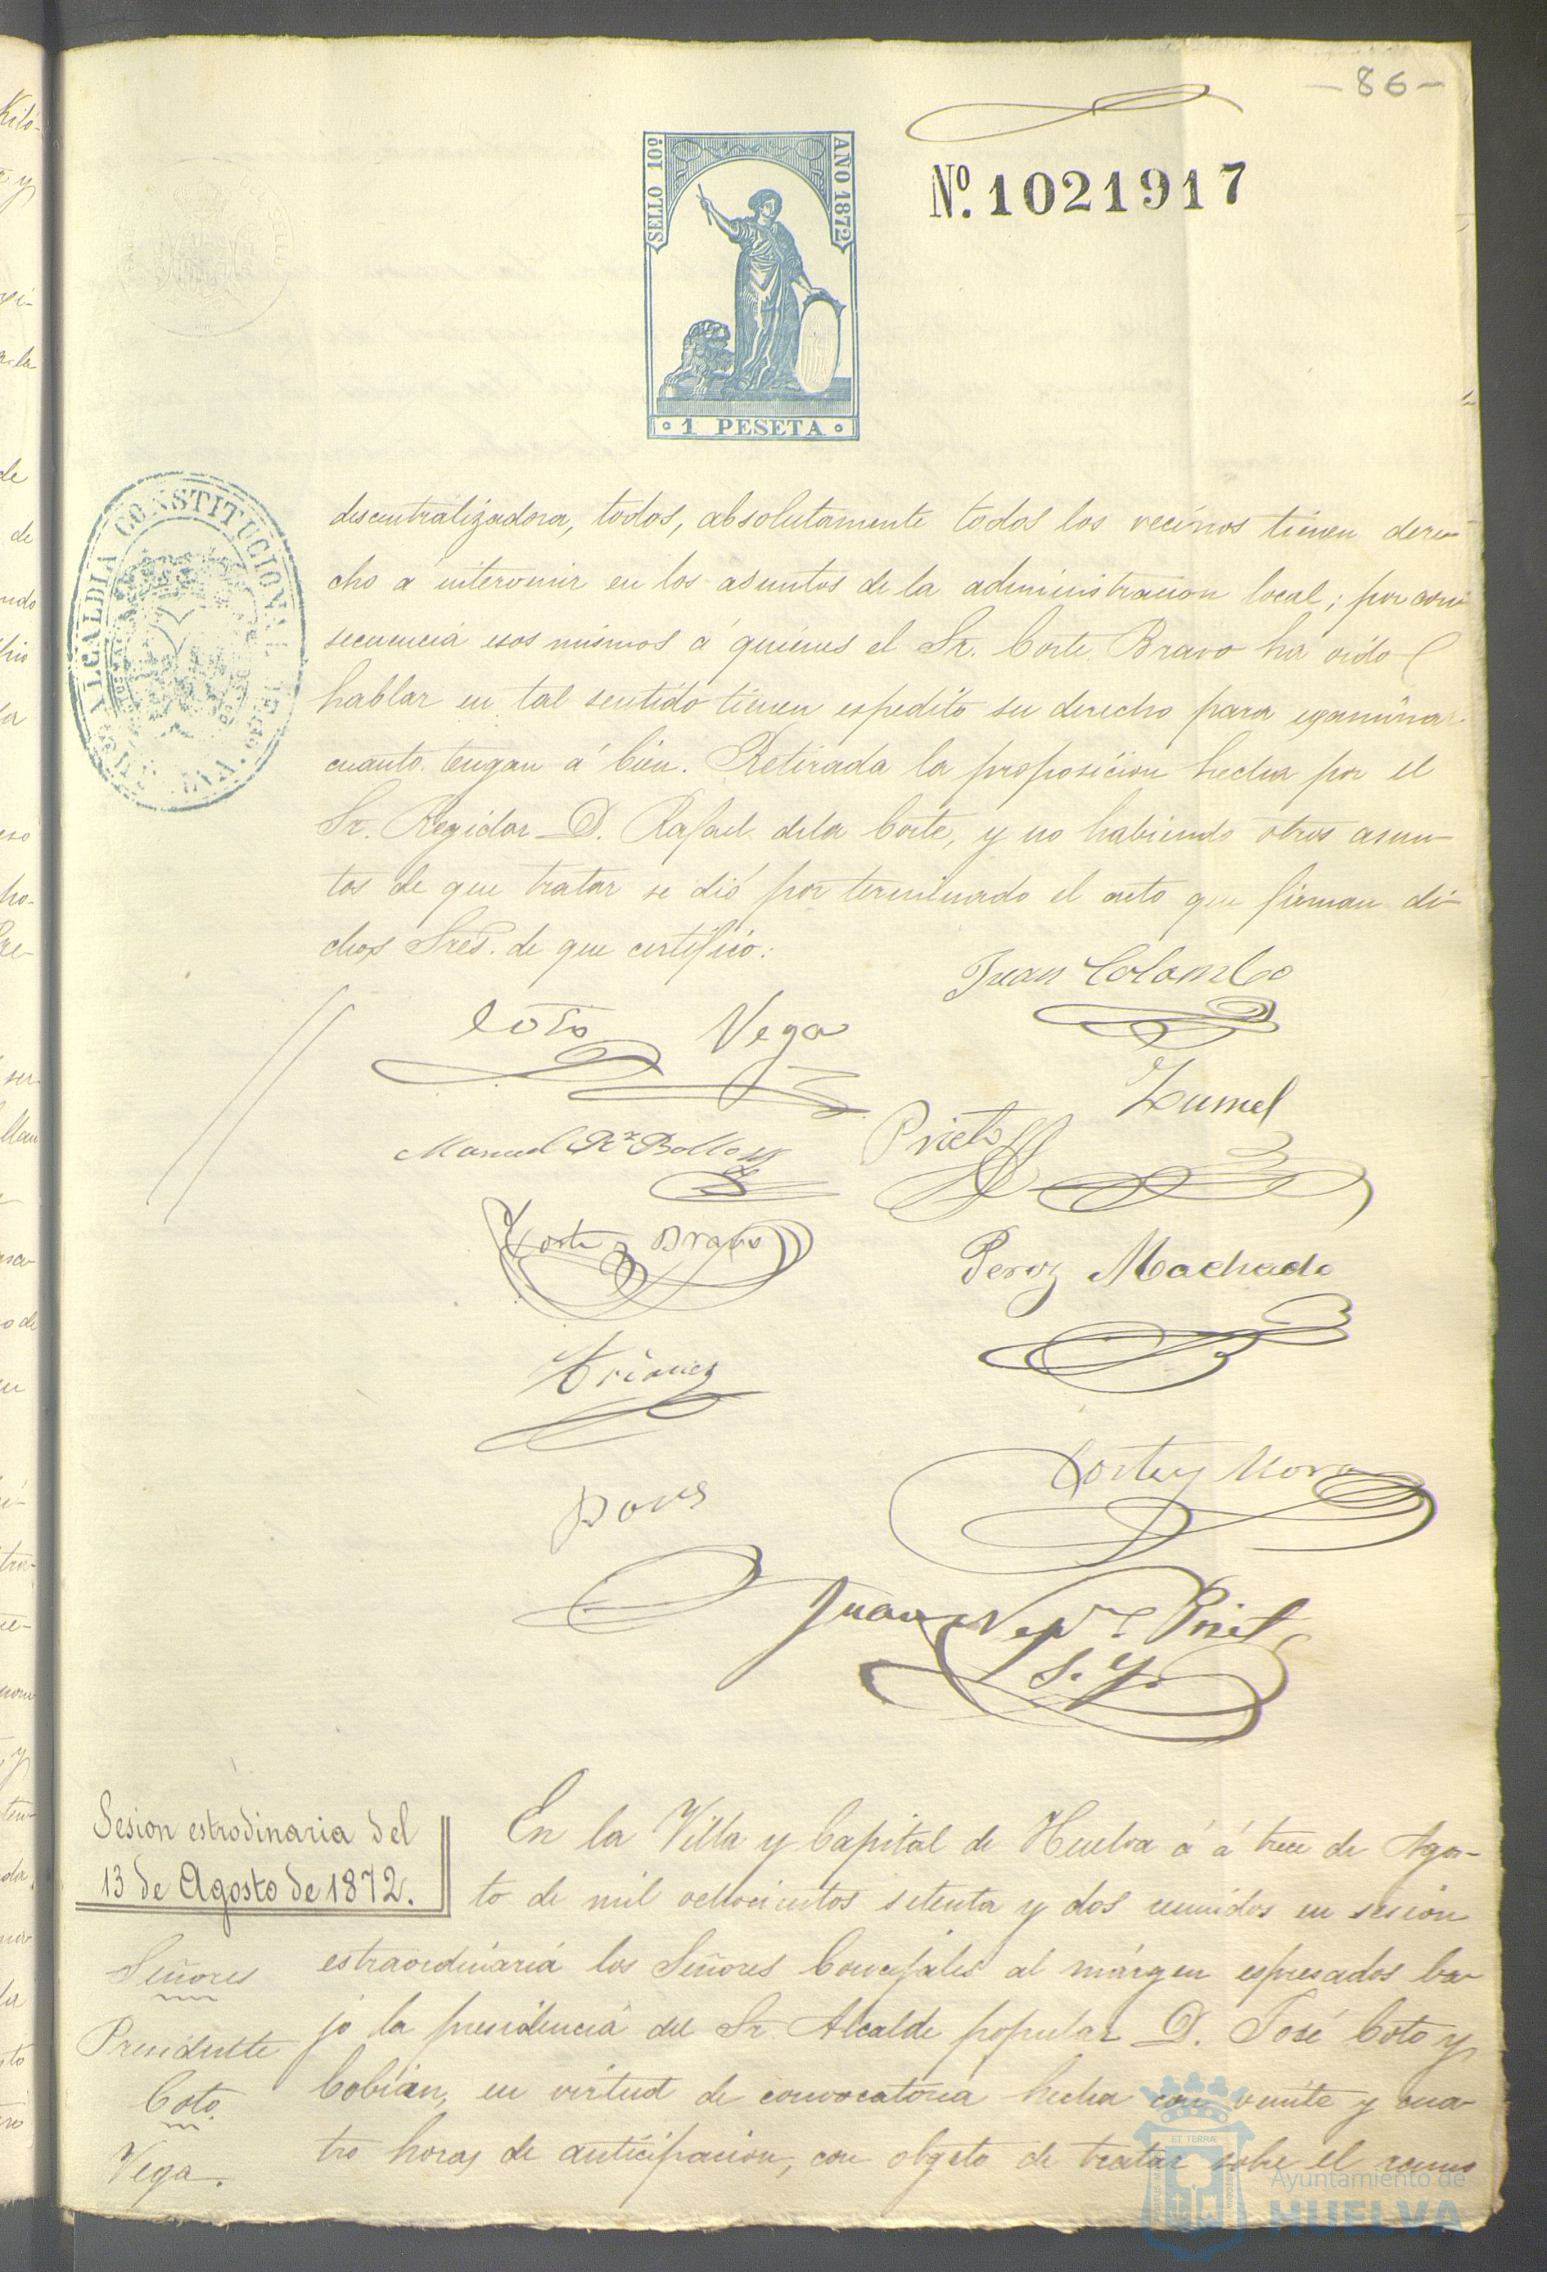 -86-
Nº. 1021917
SELLO 10º
AÑO 1872
1 PESETA
ALCALDIA CONSTITUCIONAL
descentralizadora, todos, absolutamente todos los vecinos tienen dere-
cho á intervenir en los asuntos de la administracion local; por con-
secuencia esos mismos á quienes el Sr. Corte Bravo ha oido
hablar en tal sentido tienen espedito su derecho para egsaminar
cuanto tengan á bien. Retirada la proposicion hecha por el
Sr. Regidor D. Rafael dela Corte, y no habiendo otros asun-
tos de que tratar se dió por terminado el acto que firman di-
chos Sres. de que certifico:
Juan Colombo
Coto Vega
Zumel
Manuel
Prieto
Corte Bravo
Perez Machado
Corte y Mora
Pons
Juan Nep
Sesion estrodinaria del
13 de Agosto de 1872.
En la Villa y Capital de Huelva á á trece de Agos-
to de mil ochocientos setenta y dos reunidos en sesion
estraordinaria los Señores Concejales al márgen espresados ba-
jo la presidencia del Sr. Alcalde popular D. José Coto y
Cobian, en virtud de convocatoria hecha con veinte y cua-
tro horas de anticipacion, con objeto de tratar sobre el ramo
Señores
Presidente
Coto.
Vega.
Ayuntamiento de
HUELVA